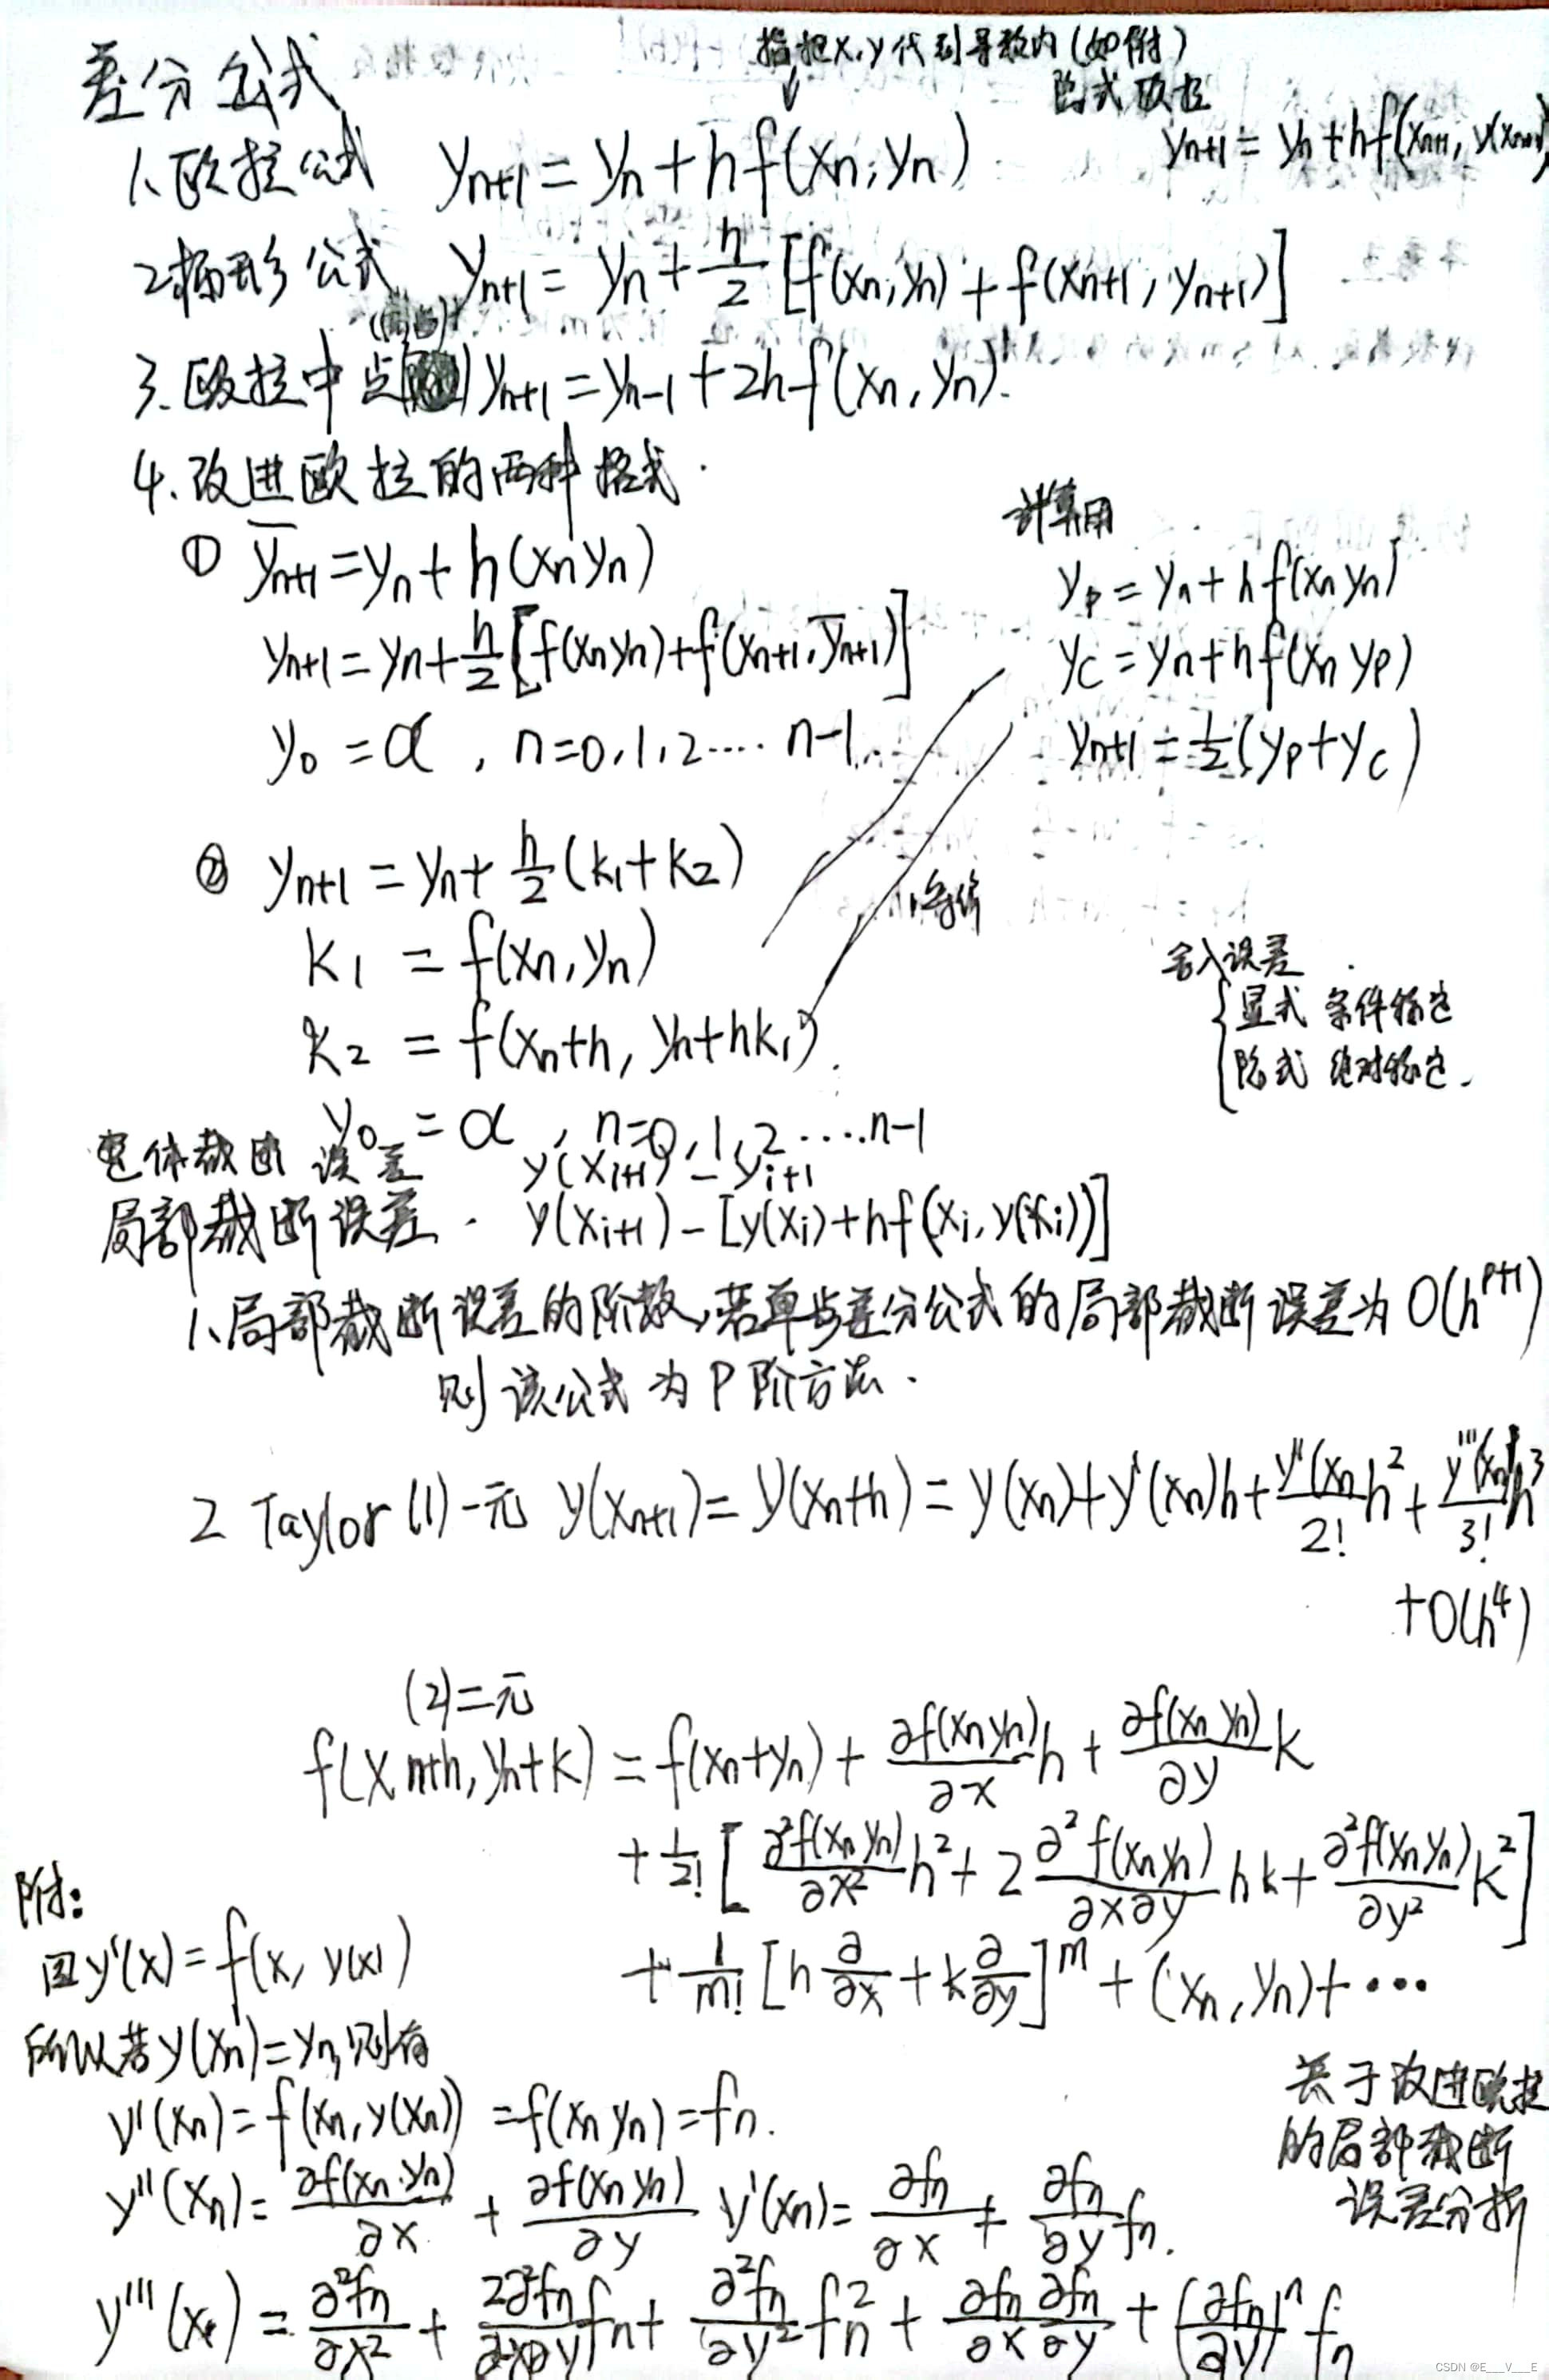 差分公式
指把x,y代到导数内(如附)
↓
隐式欧拉
yn+1 = yn + hf(xn+1, y(xn+1)
1、欧拉公式 yn+1 = yn + h f(xn, yn)
2.梯形公式 yn+1 = yn + h/2 [f(xn, yn) + f(xn+1, yn+1)]
3.欧拉中点 yn+1 = yn-1 + 2hf(xn, yn).
4、改进欧拉的两种格式.
① y̅n+1 = yn + h(xn yn)
yn+1 = yn + h/2 [f(xn yn) + f(xn+1, y̅n+1)]
y0 = α, n=0,1,2.... n-1.
计算用
yp = yn + hf(xn yn)
yc = yn + hf(xn yp)
yn+1 = 1/2 (yp + yc)
② yn+1 = yn + h/2 (k1+k2)
k1 = f(xn, yn)
k2 = f(xn+h, yn+hk1).
y0 = α, n=0,1,2....n-1
等价
舍入误差.
{显式 条件稳定
隐式 绝对稳定.
整体截断误差 y(xi+1) - yi+1
局部截断误差. y(xi+1) - [y(xi) + hf(xi, y(xi))]
1、局部截断误差的阶数,若单步差分公式的局部截断误差为O(h^p+1)
则该公式为P阶方法.
2 Taylor (1)一元 y(xn+1) = y(xn+h) = y(xn) + y'(xn)h + y''(xn/2! h² + y'''(xn)/3! h³
+O(h⁴)
(2)二元
f(xn+h, yn+k) = f(xn+yn) + ∂f(xn yn)/∂x h + ∂f(xn yn)/∂y k
+ 1/2! [∂²f(xn yn)/∂x² h² + 2 ∂²f(xn yn)/∂x∂y hk + ∂²f(xn yn)/∂y² k²]
+ 1/m! [h ∂/∂x + k ∂/∂y]^m + (xn, yn) + ...
附:
因y'(x) = f(x, y(x)
所以若y(xn) = yn,则有
y'(xn) = f(xn, y(xn)) = f(xn yn) = fn.
y''(xn) = ∂f(xn, yn)/∂x + ∂f(xn yn)/∂y y'(xn) = ∂fn/∂x + ∂fn/∂y fn.
关于改进欧拉
的局部截断
误差分析
∂²fn/∂x² + 2∂²fn/∂x∂y fn + ∂²fn/∂y² fn² + ∂fn/∂x ∂fn/∂y +
CSDN @E__V__E